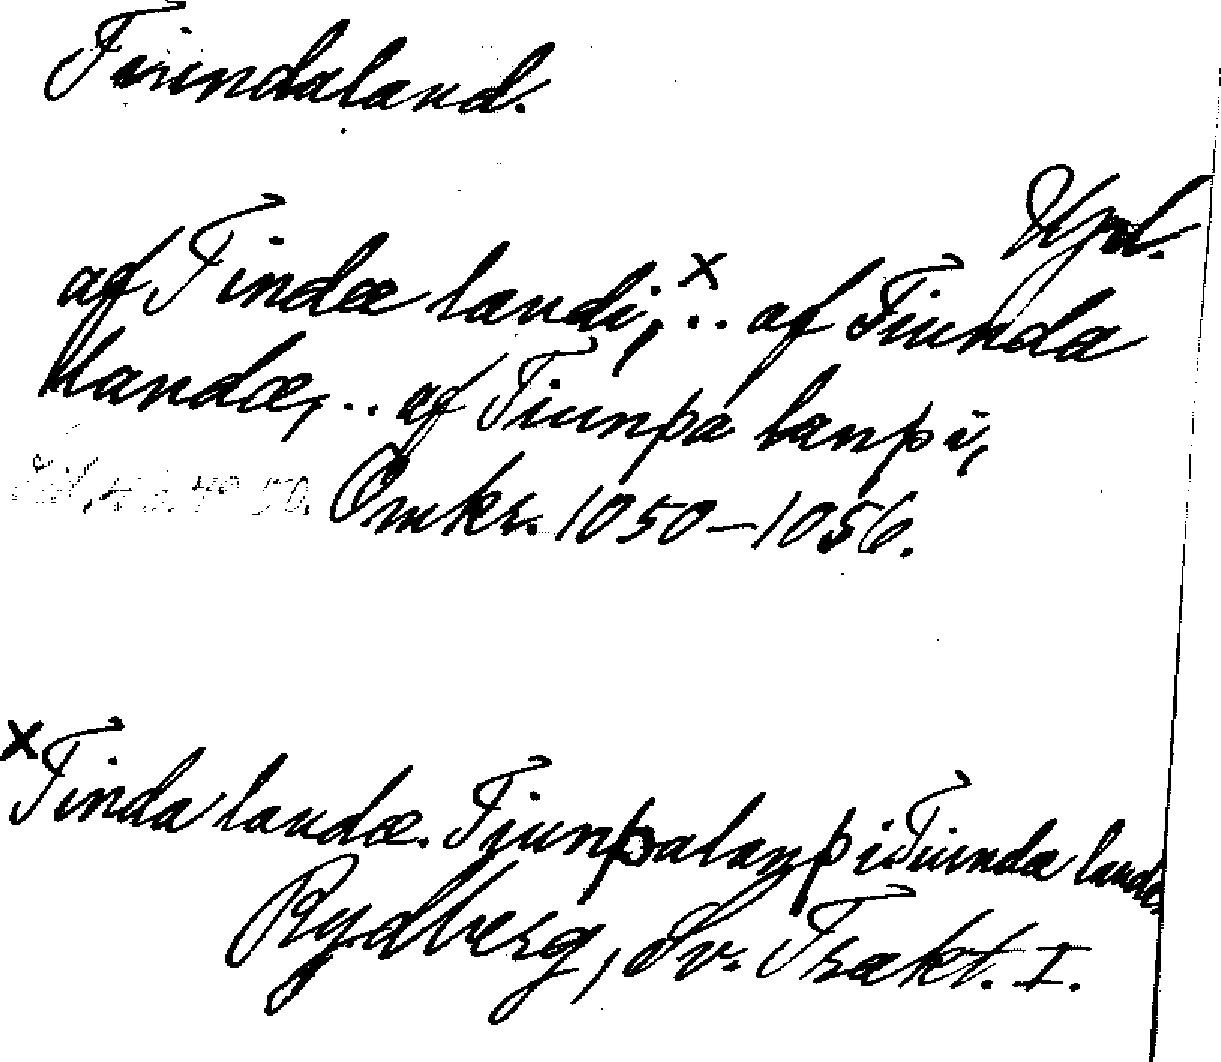 Tiundaland.
Upl.
af Tindæ landi,ˣ .. af Tiunda
landæ, .. af Tiunþa lanþi,
Omkr. 1050–1056.
ˣTinda landæ. Tiunþalanþi Tiunda landæ
Rydberg, Sv. Trakt. I.